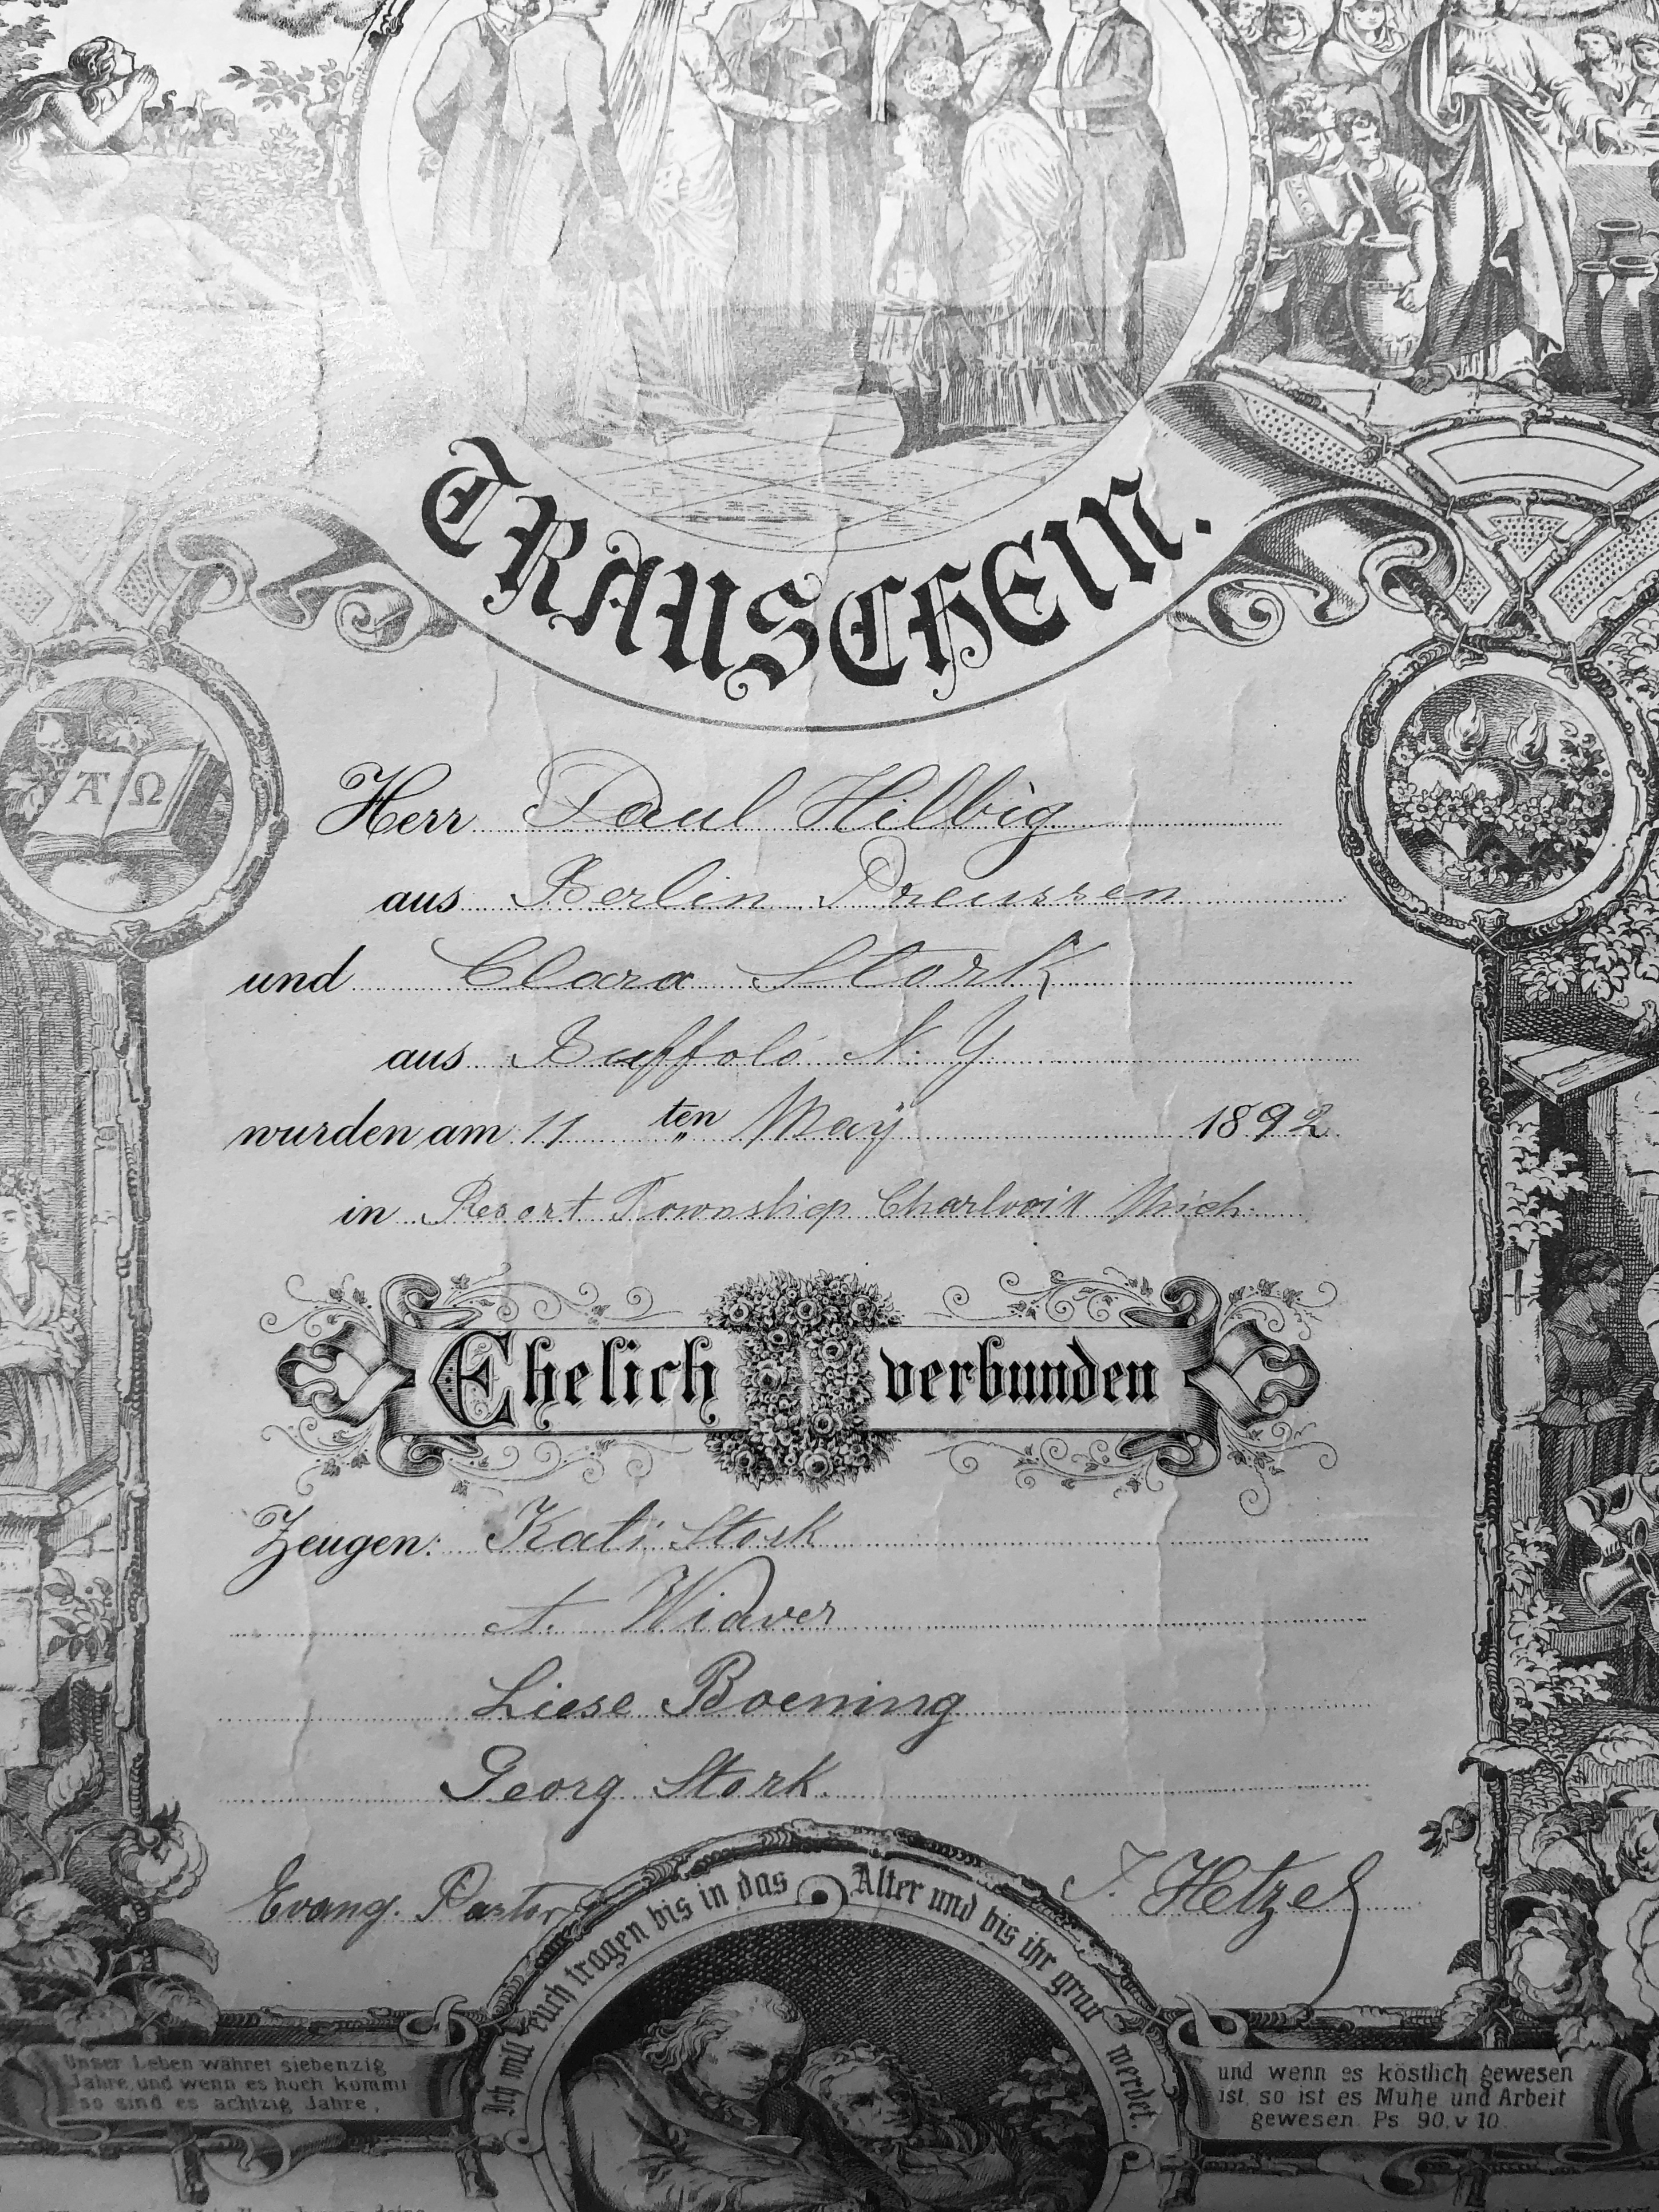 TRAUSCHEIN.
A Ω
Herr Paul Hilbig
aus Berlin Preussen
und Clara Stork
aus Buffolo N. Y.
wurden am 11 ten May 1892
in Resort Township Charlvoix Mich.
Ehelich verbunden
Zeugen: Kati Stork
A. Widver
Liese Boening
Georg Stork.
Evang. Pastor Hetzel
Ich will euch tragen bis in das Alter und bis ihr grau werdet.
Unser Leben währet siebenzig
Jahre, und wenn es hoch kommt
so sind es achtzig Jahre,
und wenn es köstlich gewesen
ist, so ist es Mühe und Arbeit
gewesen. Ps. 90. v 10.